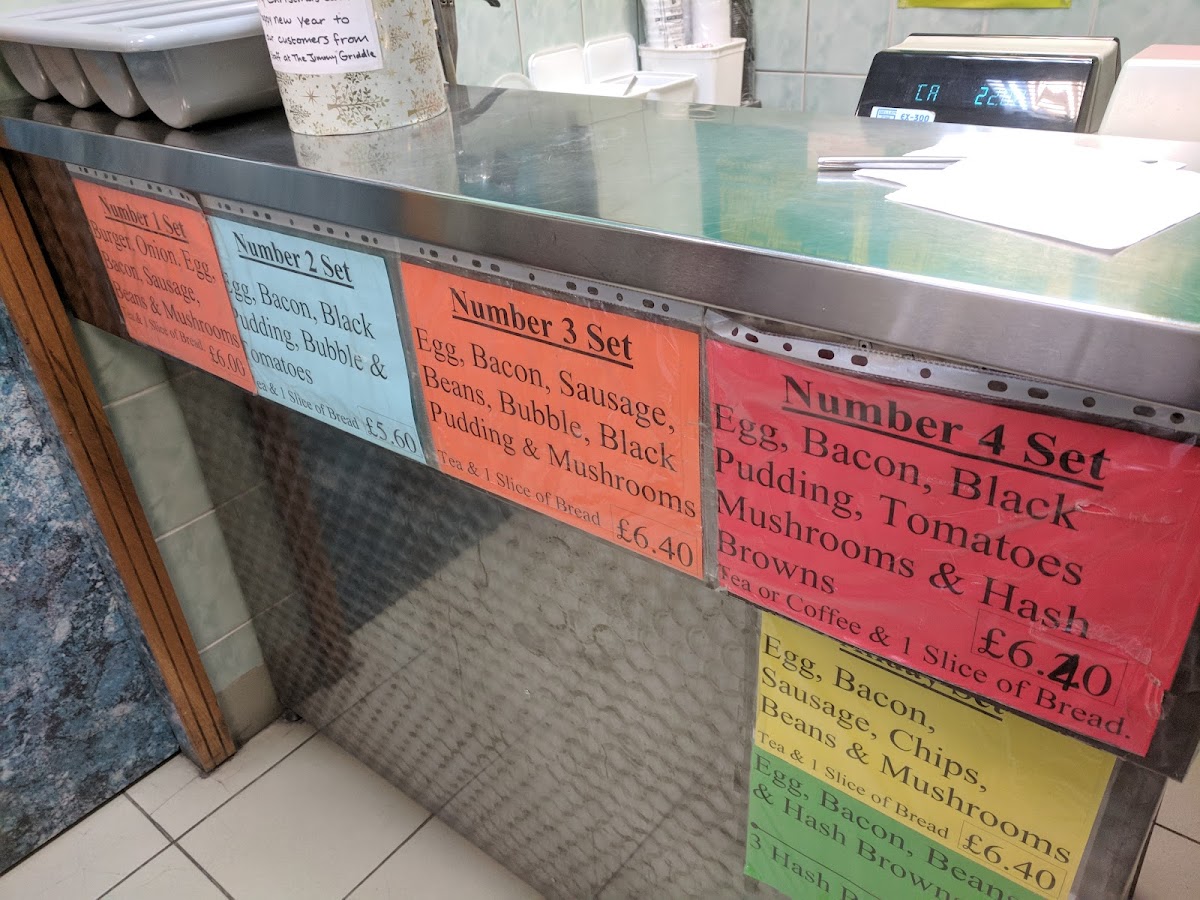 new Year to
customers from
at The Jimmy Griddle
CA
EX-300
Number 1 Set
Burger, Onion, Egg,
Bacon, Sausage,
Beans & Mushrooms
& 1 Slice of Bread. £6.00
Number 2 Set
Egg, Bacon, Black
Pudding, Bubble &
Tomatoes
Tea & 1 Slice of Bread £5.60
Number 3 Set
Egg, Bacon, Sausage,
Beans, Bubble, Black
Pudding & Mushrooms
Tea & 1 Slice of Bread £6.40
Number 4 Set
Egg, Bacon, Black
Pudding, Tomatoes
Mushrooms & Hash
Browns £6.40
Tea or Coffee & 1 Slice of Bread.
Set
Egg, Bacon,
Sausage, Chips,
Beans & Mushrooms
Tea & 1 Slice of Bread £6.40
Egg, Bacon, Beans
& Hash Browns
3 Hash